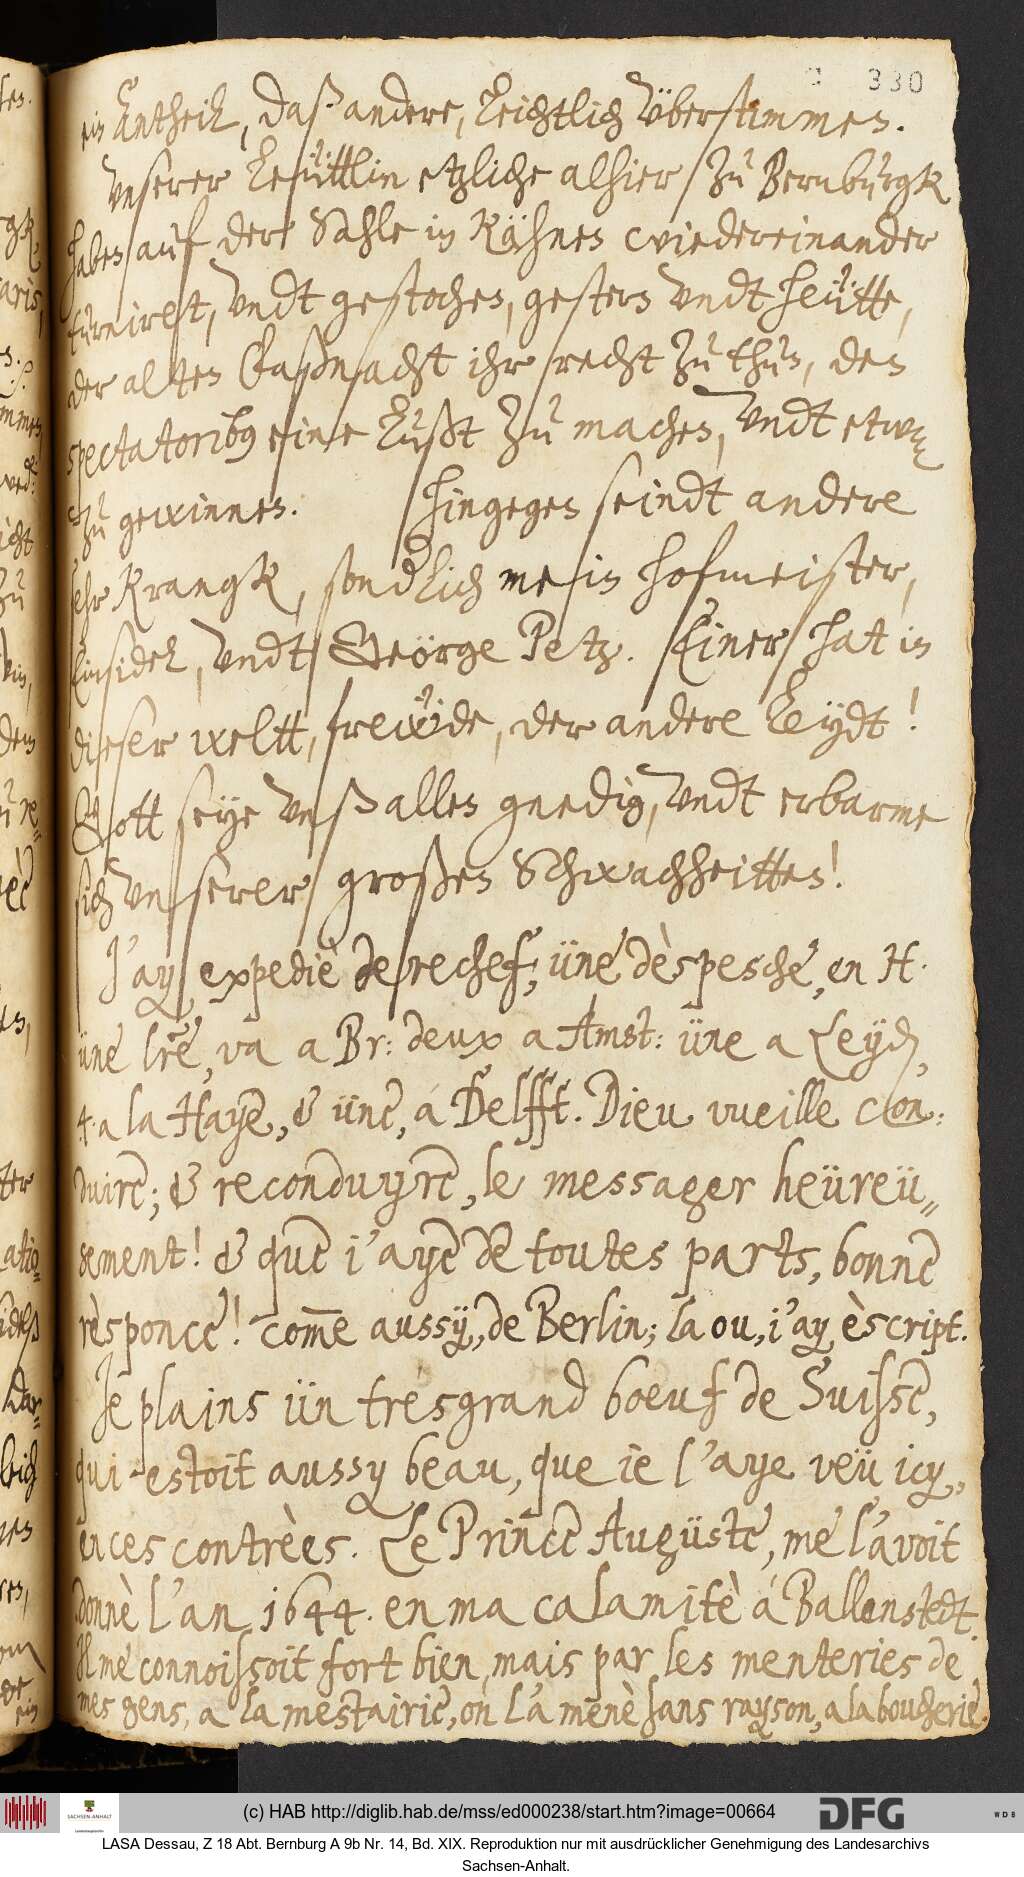 330
ein Antheil, daß andere, leichtlich überstimmen.
Unserer Leüttlin etzliche alhier zu Bernburgk
haben auf der Sahle in Kähnen wiedereinander
turnirent, undt gestochen, gestern undt heütte,
der alten Faßnacht ihr recht zu thun, den
spectatorib9 eine Lust zu machen, undt etwaz
zu gewinnen. Hingegen seindt andere
sehr Krangk, sond(er)lich mein Hofmeister,
Einsidel, undt Geörge Petz. Einer hat in
dieser weltt, freẅde, der andere Leydt!
Gott seye unß allen gnedig, undt erbarme
sich unserer großen Schwachheitten!
J'ay expediè derechef, üne dèspesche, en H.
üne lre, va a Br: deux a Amst: üne a Leyd,
4. a la Haye, & üne, a Delfft. Dieu vueille con:
duire; & reconduyre, le messager heüreü„
sement! & que i'aye de toutes parts, bonne
rèsponce! come aussy, de Berlin; la ou, i'ay èscript.
Je plains ün tresgrand boeuf de Suisse,
qui estoit aussy beau, que ie l'aye veü icy,
en ces contrèes. Le Prince Auguste, me l'avoit
donnè l'an 1644. en ma calamitè a Ballenstedt.
Il me connoissoit fort bien, mais par les menteries de
mes gens, a la mestairie, on l'a menè sans rayson, a la boucherie.
(c) HAB http://diglib.hab.de/mss/ed000238/start.htm?image=00664
SACHSEN-ANHALT
DFG
WDB
LASA Dessau, Z 18 Abt. Bernburg A 9b Nr. 14, Bd. XIX. Reproduktion nur mit ausdrücklicher Genehmigung des Landesarchivs
Sachsen-Anhalt.